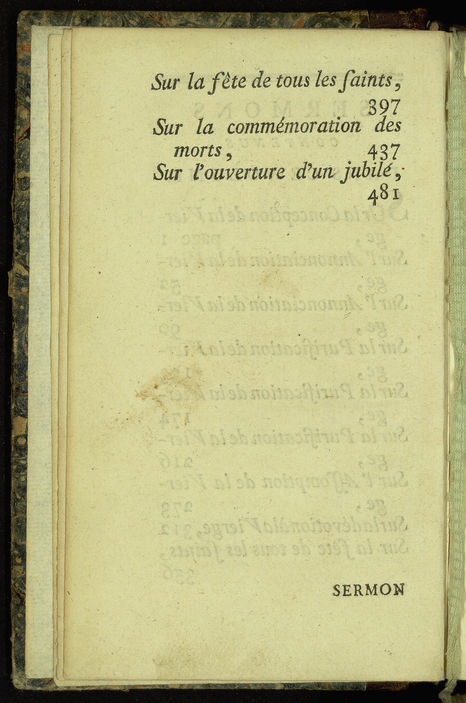 Sur la fête de tous les ſaints,
397
Sur la commémoration des
morts, 437
Sur l'ouverture d'un jubilé,
481
SERMON